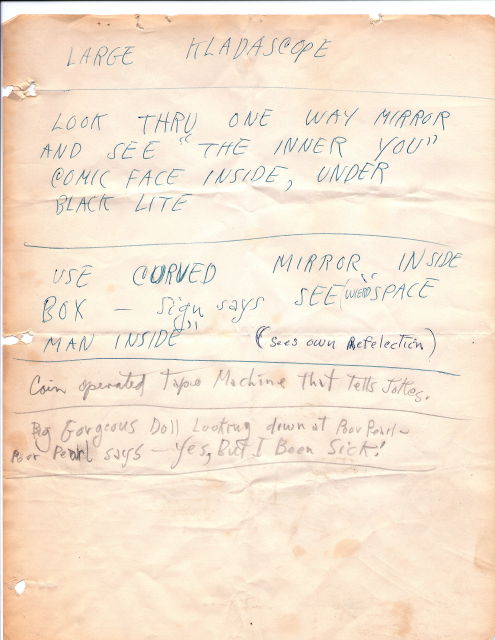 LARGE KLADASCOPE
LOOK THRU ONE WAY MIRROR
AND SEE "THE INNER YOU"
COMIC FACE INSIDE, UNDER
BLACK LITE
USE CURVED MIRROR INSIDE
BOX - Sign says SEE "(WIERD) SPACE
MAN INSIDE" (Sees own Refelection)
Coin operated Tape Machine that Tells Jokes.
Big Gorgeous Doll Looking down at Poor Pearl -
Poor Pearl says - Yes, But I Been Sick!